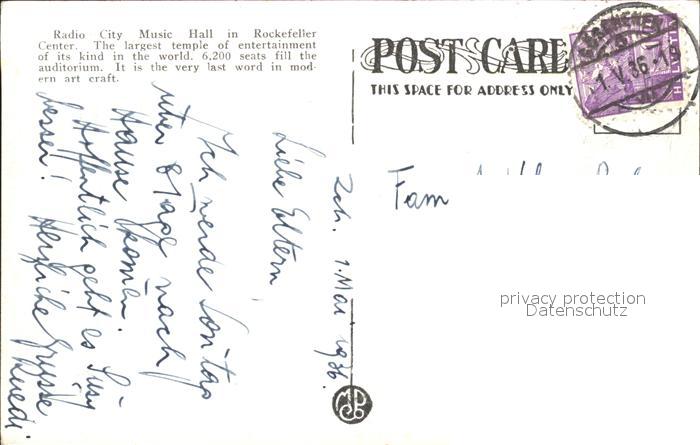 Radio City Music Hall in Rockefeller
Center. The largest temple of entertainment
of its kind in the world. 6,200 seats fill the
auditorium. It is the very last word in mod-
ern art craft.
POST CARD
THIS SPACE FOR ADDRESS ONLY
1.V.36.-19
Zch. 1. Mai 1936.
Liebe Eltern,
Ich werde Sontag
nach
Hause komen.
Hoffentlich geht es Susy
besser! Herzliche Grüsse
Ruedi.
Fam
privacy protection
Datenschutz